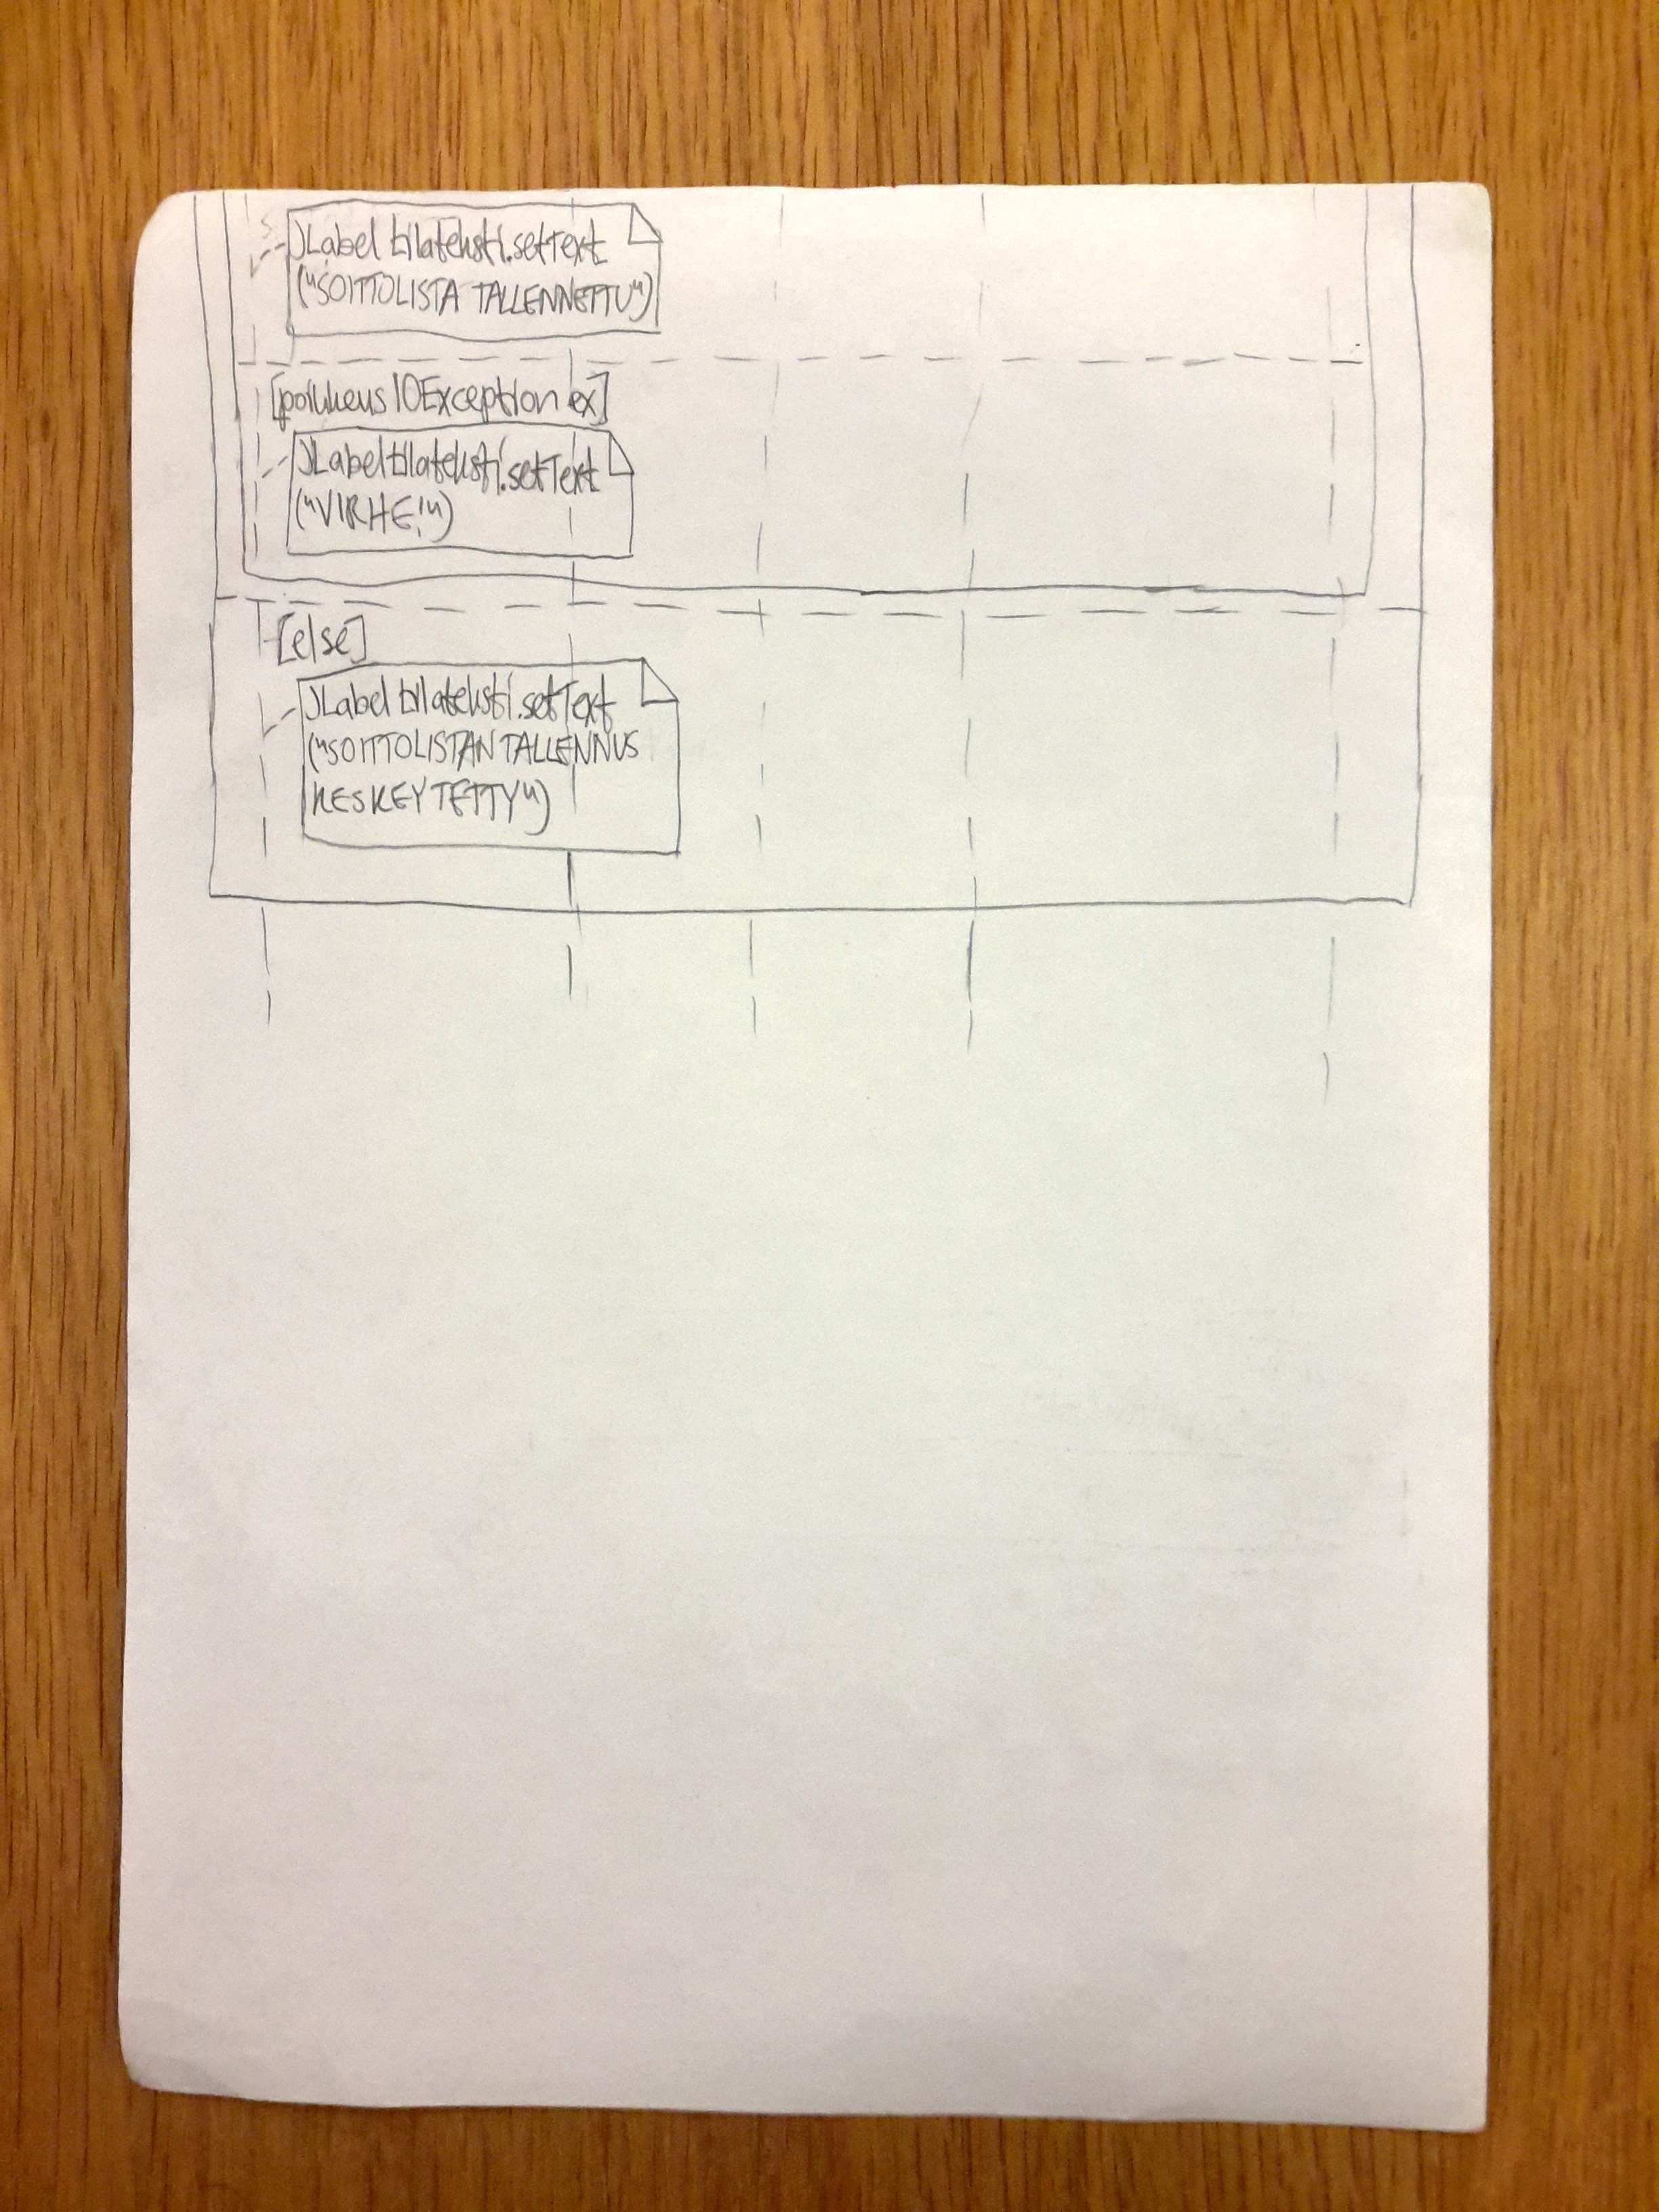 JLabel tilateksti.setText
("SOITTOLISTA TALLENNETTU")
[poikkeus IOException ex]
JLabel tilateksti.setText
("VIRHE!")
[else]
JLabel tilateksti.setText
("SOITTOLISTAN TALLENNUS
KESKEYTETTY")